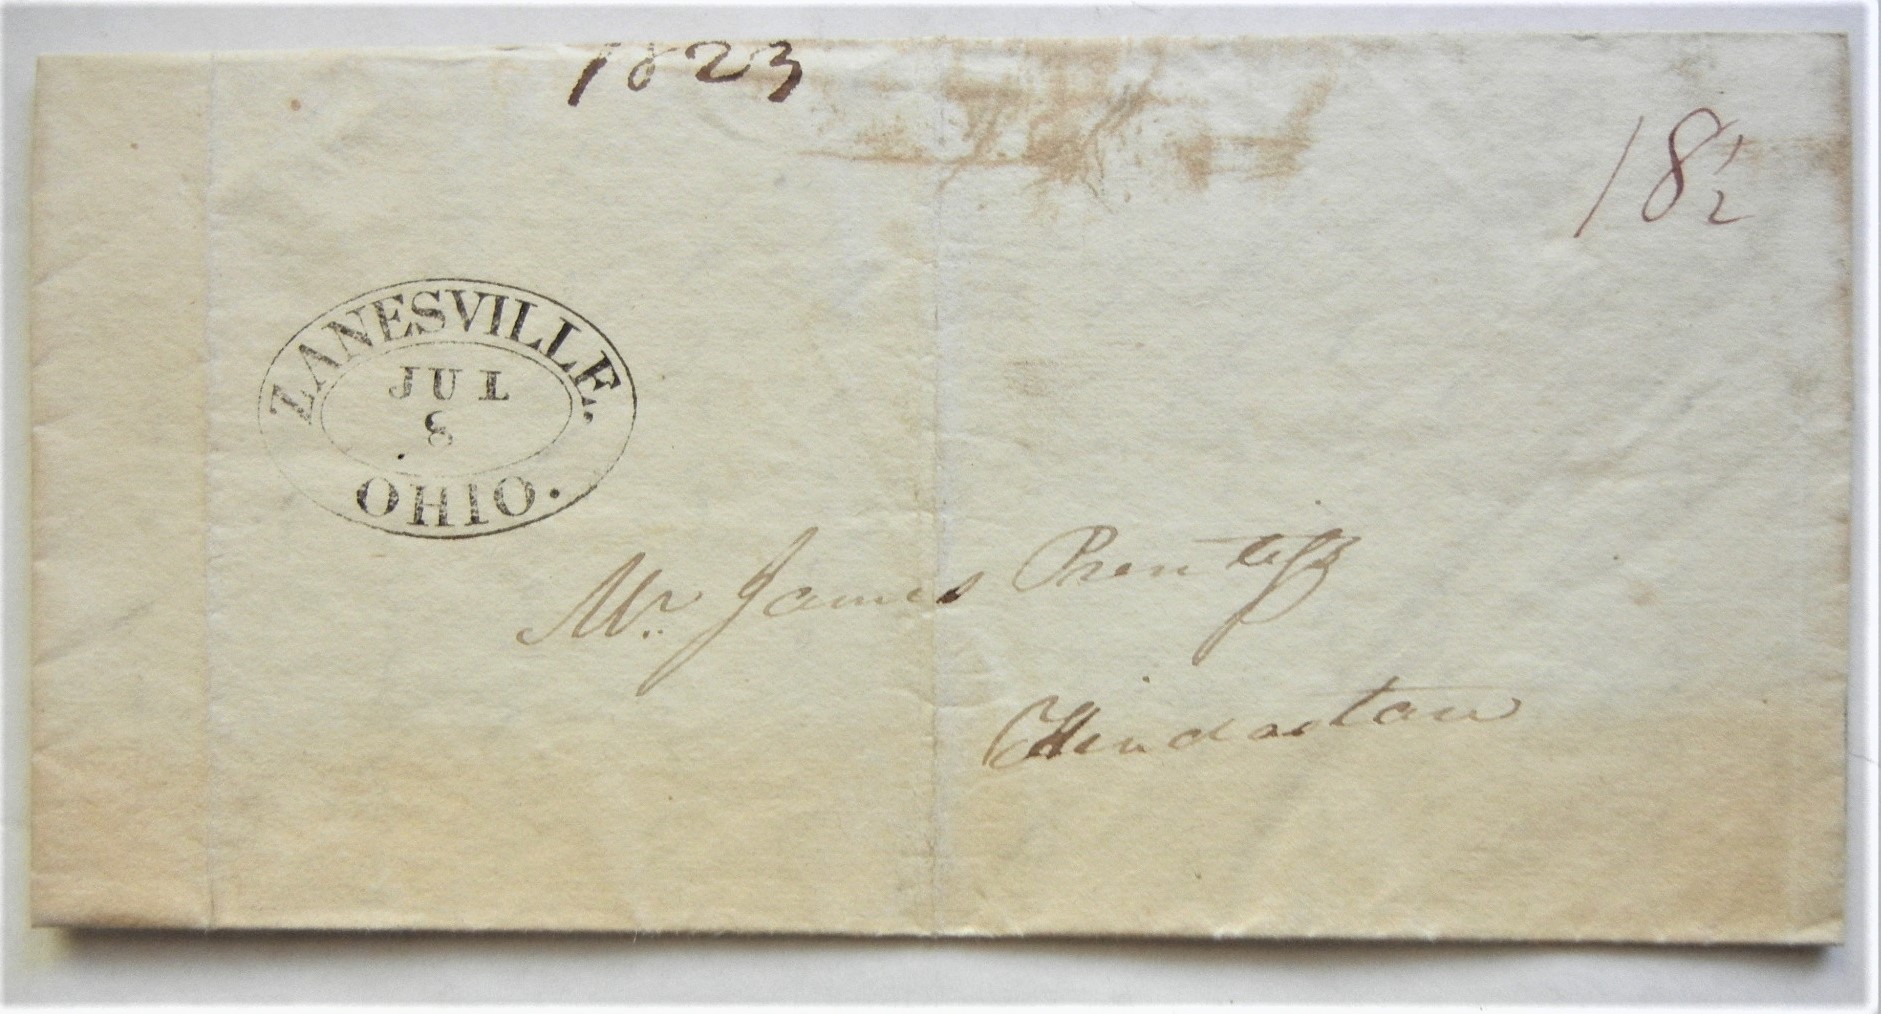 1823
18 1/2
ZANESVILLE.
JUL
8
OHIO.
Mr. James Prentiss
Hindostan